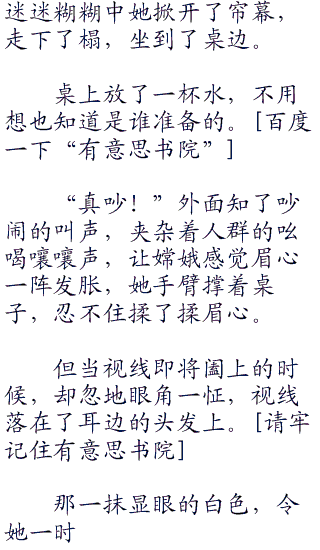 迷迷糊糊中她掀开了帘幕，
走下了榻，坐到了桌边。
桌上放了一杯水，不用
想也知道是谁准备的。[百度
一下“有意思书院”]
“真吵！”外面知了吵
闹的叫声，夹杂着人群的吆
喝嚷嚷声，让嫦娥感觉眉心
一阵发胀，她手臂撑着桌
子，忍不住揉了揉眉心。
但当视线即将阖上的时
候，却忽地眼角一怔，视线
落在了耳边的头发上。[请牢
记住有意思书院]
那一抹显眼的白色，令
她一时